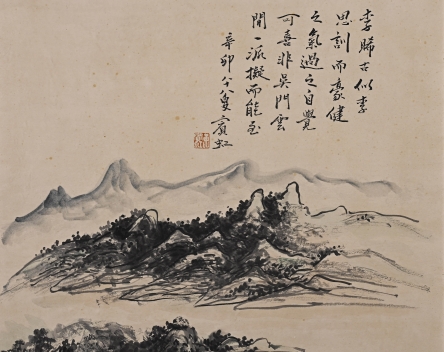 李晞古似李
思訓而豪健
之氣過之自覺
可喜非吳門雲
間一派擬而能至
辛卯八十八叟賓虹